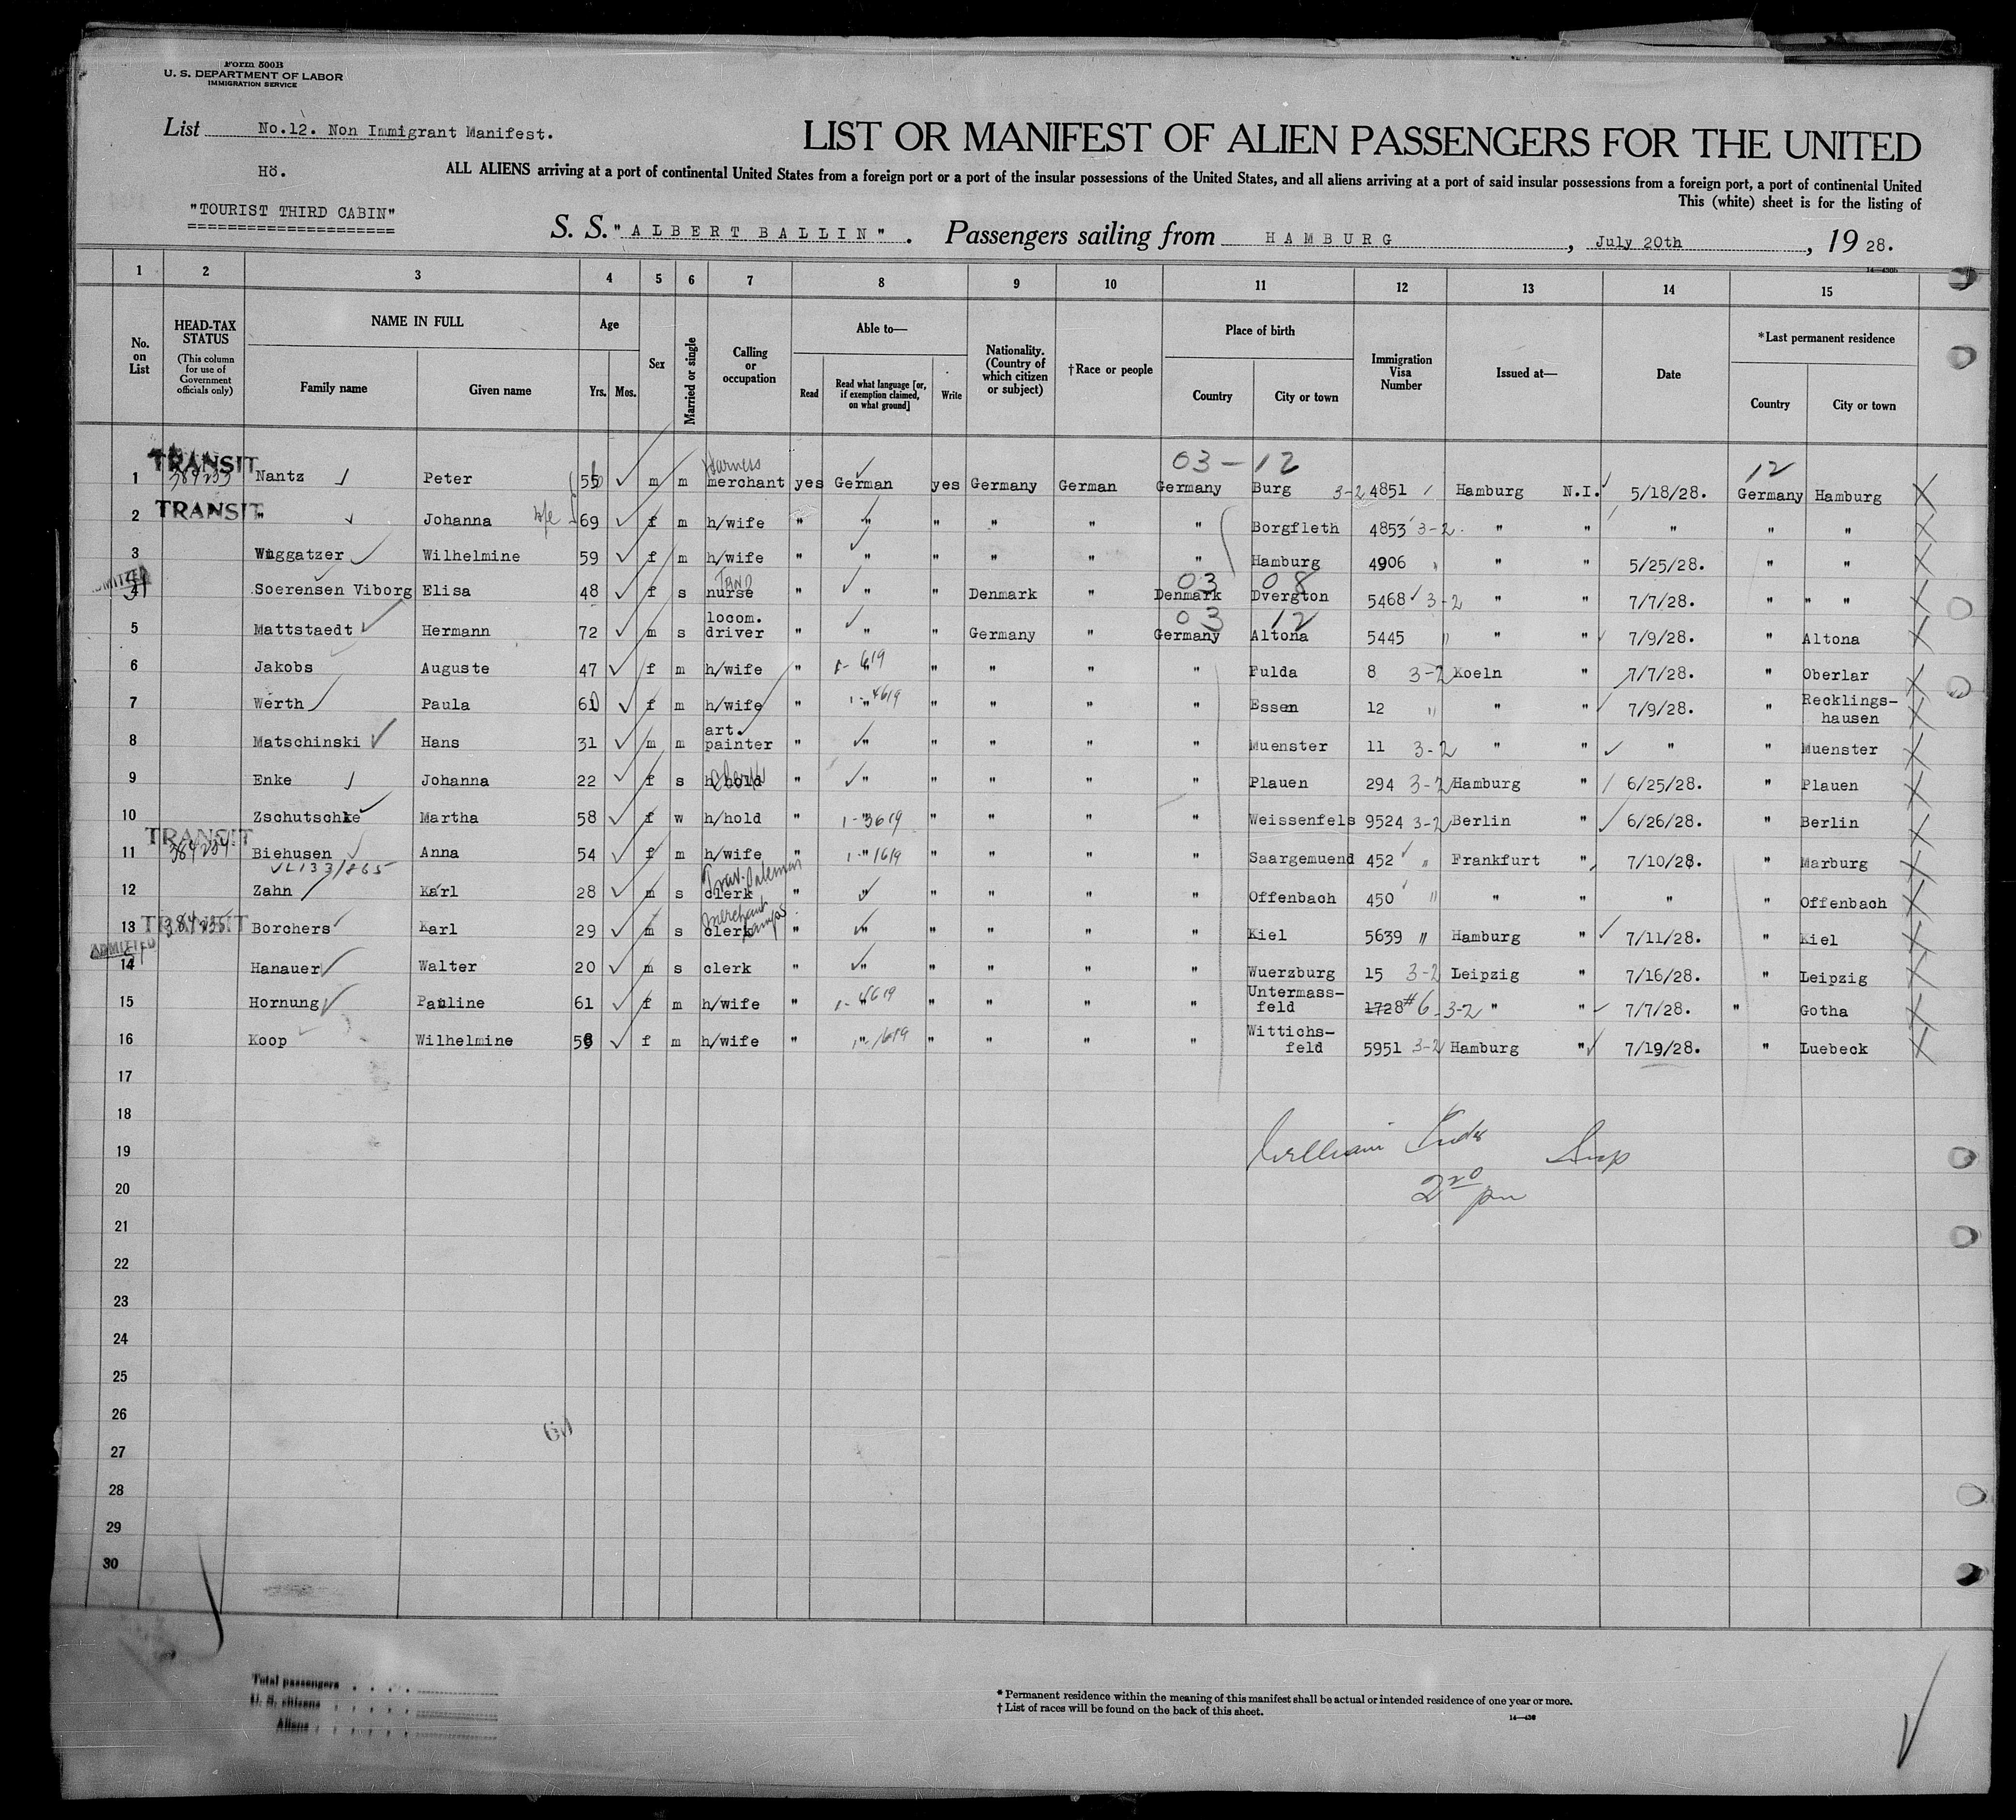 Form 500B
U. S. DEPARTMENT OF LABOR
IMMIGRATION SERVICE
List No.12. Non Immigrant Manifest.
LIST OR MANIFEST OF ALIEN PASSENGERS FOR THE UNITED
Hö.
ALL ALIENS arriving at a port of continental United States from a foreign port or a port of the insular possessions of the United States, and all aliens arriving at a port of said insular possessions from a foreign port, a port of continental United
This (white) sheet is for the listing of
"TOURIST THIRD CABIN"
S. S. "ALBERT BALLIN". Passengers sailing from HAMBURG, July 20th, 1928.
14-430b
1 2 3 4 5 6 7 8 9 10 11 12 13 14 15
No. on List
HEAD-TAX STATUS (This column for use of Government officials only)
NAME IN FULL
Family name
Given name
Age
Yrs. Mos.
Sex
Married or single
Calling or occupation
Able to—
Read
Read what language [or, if exemption claimed, on what ground]
Write
Nationality. (Country of which citizen or subject)
†Race or people
Place of birth
Country
City or town
Immigration Visa Number
Issued at—
Date
*Last permanent residence
Country
City or town
03 - 12 12
TRANSIT 384233 Harness
1 Nantz Peter 55 m m merchant yes German yes Germany German Germany Burg 3-2 4851 Hamburg N.I. 5/18/28. Germany Hamburg
TRANSIT
2 " Johanna 69 f m h/wife " " " " " " Borgfleth 4853 3-2 " " " " "
3 Wuggatzer Wilhelmine 59 f m h/wife " " " " " " Hamburg 4906 " " 5/25/28. " "
ADMITTED 03 08
4 Soerensen Viborg Elisa 48 f s nurse " " " Denmark " Denmark Dvergton 5468 3-2 " " 7/7/28. " " "
03 12
5 Mattstaedt Hermann 72 m s locom. driver " " " Germany " Germany Altona 5445 " " " 7/9/28. " Altona
6 Jakobs Auguste 47 f m h/wife " " " " " " Fulda 8 3-2 Koeln " 7/7/28. " Oberlar
7 Werth Paula 61 f m h/wife " 1-4619 " " " " " Essen 12 " " " 7/9/28. " Recklings-hausen
8 Matschinski Hans 31 m m art. painter " " " " " " Muenster 11 3-2 " " " " Muenster
9 Enke Johanna 22 f s h/hold " " " " " " Plauen 294 3-2 Hamburg " 6/25/28. " Plauen
10 Zschutschke Martha 58 f w h/hold " 1-3619 " " " " " Weissenfels 9524 3-2 Berlin " 6/26/28. " Berlin
TRANSIT
11 Biehusen Anna 54 f m h/wife " 1-1619 " " " " " Saargemuend 452 " Frankfurt " 7/10/28. " Marburg
Trav. Salesman
12 Zahn Karl 28 m s clerk " " " " " " Offenbach 450 " " " " " Offenbach
TRANSIT 384235 merchant
13 Borchers Karl 29 m s clerk " " " " " " Kiel 5639 " Hamburg " 7/11/28. " Kiel
ADMITTED
14 Hanauer Walter 20 m s clerk " " " " " " Wuerzburg 15 3-2 Leipzig " 7/16/28. " Leipzig
15 Hornung Pauline 61 f m h/wife " " " " " " Untermass-feld 1728 #6 3-2 " " 7/7/28. " Gotha
16 Koop Wilhelmine 59 f m h/wife " 1-1619 " " " " " Wittichs-feld 5951 3-2 Hamburg " 7/19/28. " Luebeck
17
18
19 William Insp
20 2 20 pm
21
22
23
24
25
26
27
28
29
30
Total passengers
U. S. citizens
Aliens
* Permanent residence within the meaning of this manifest shall be actual or intended residence of one year or more.
† List of races will be found on the back of this sheet.
14-430